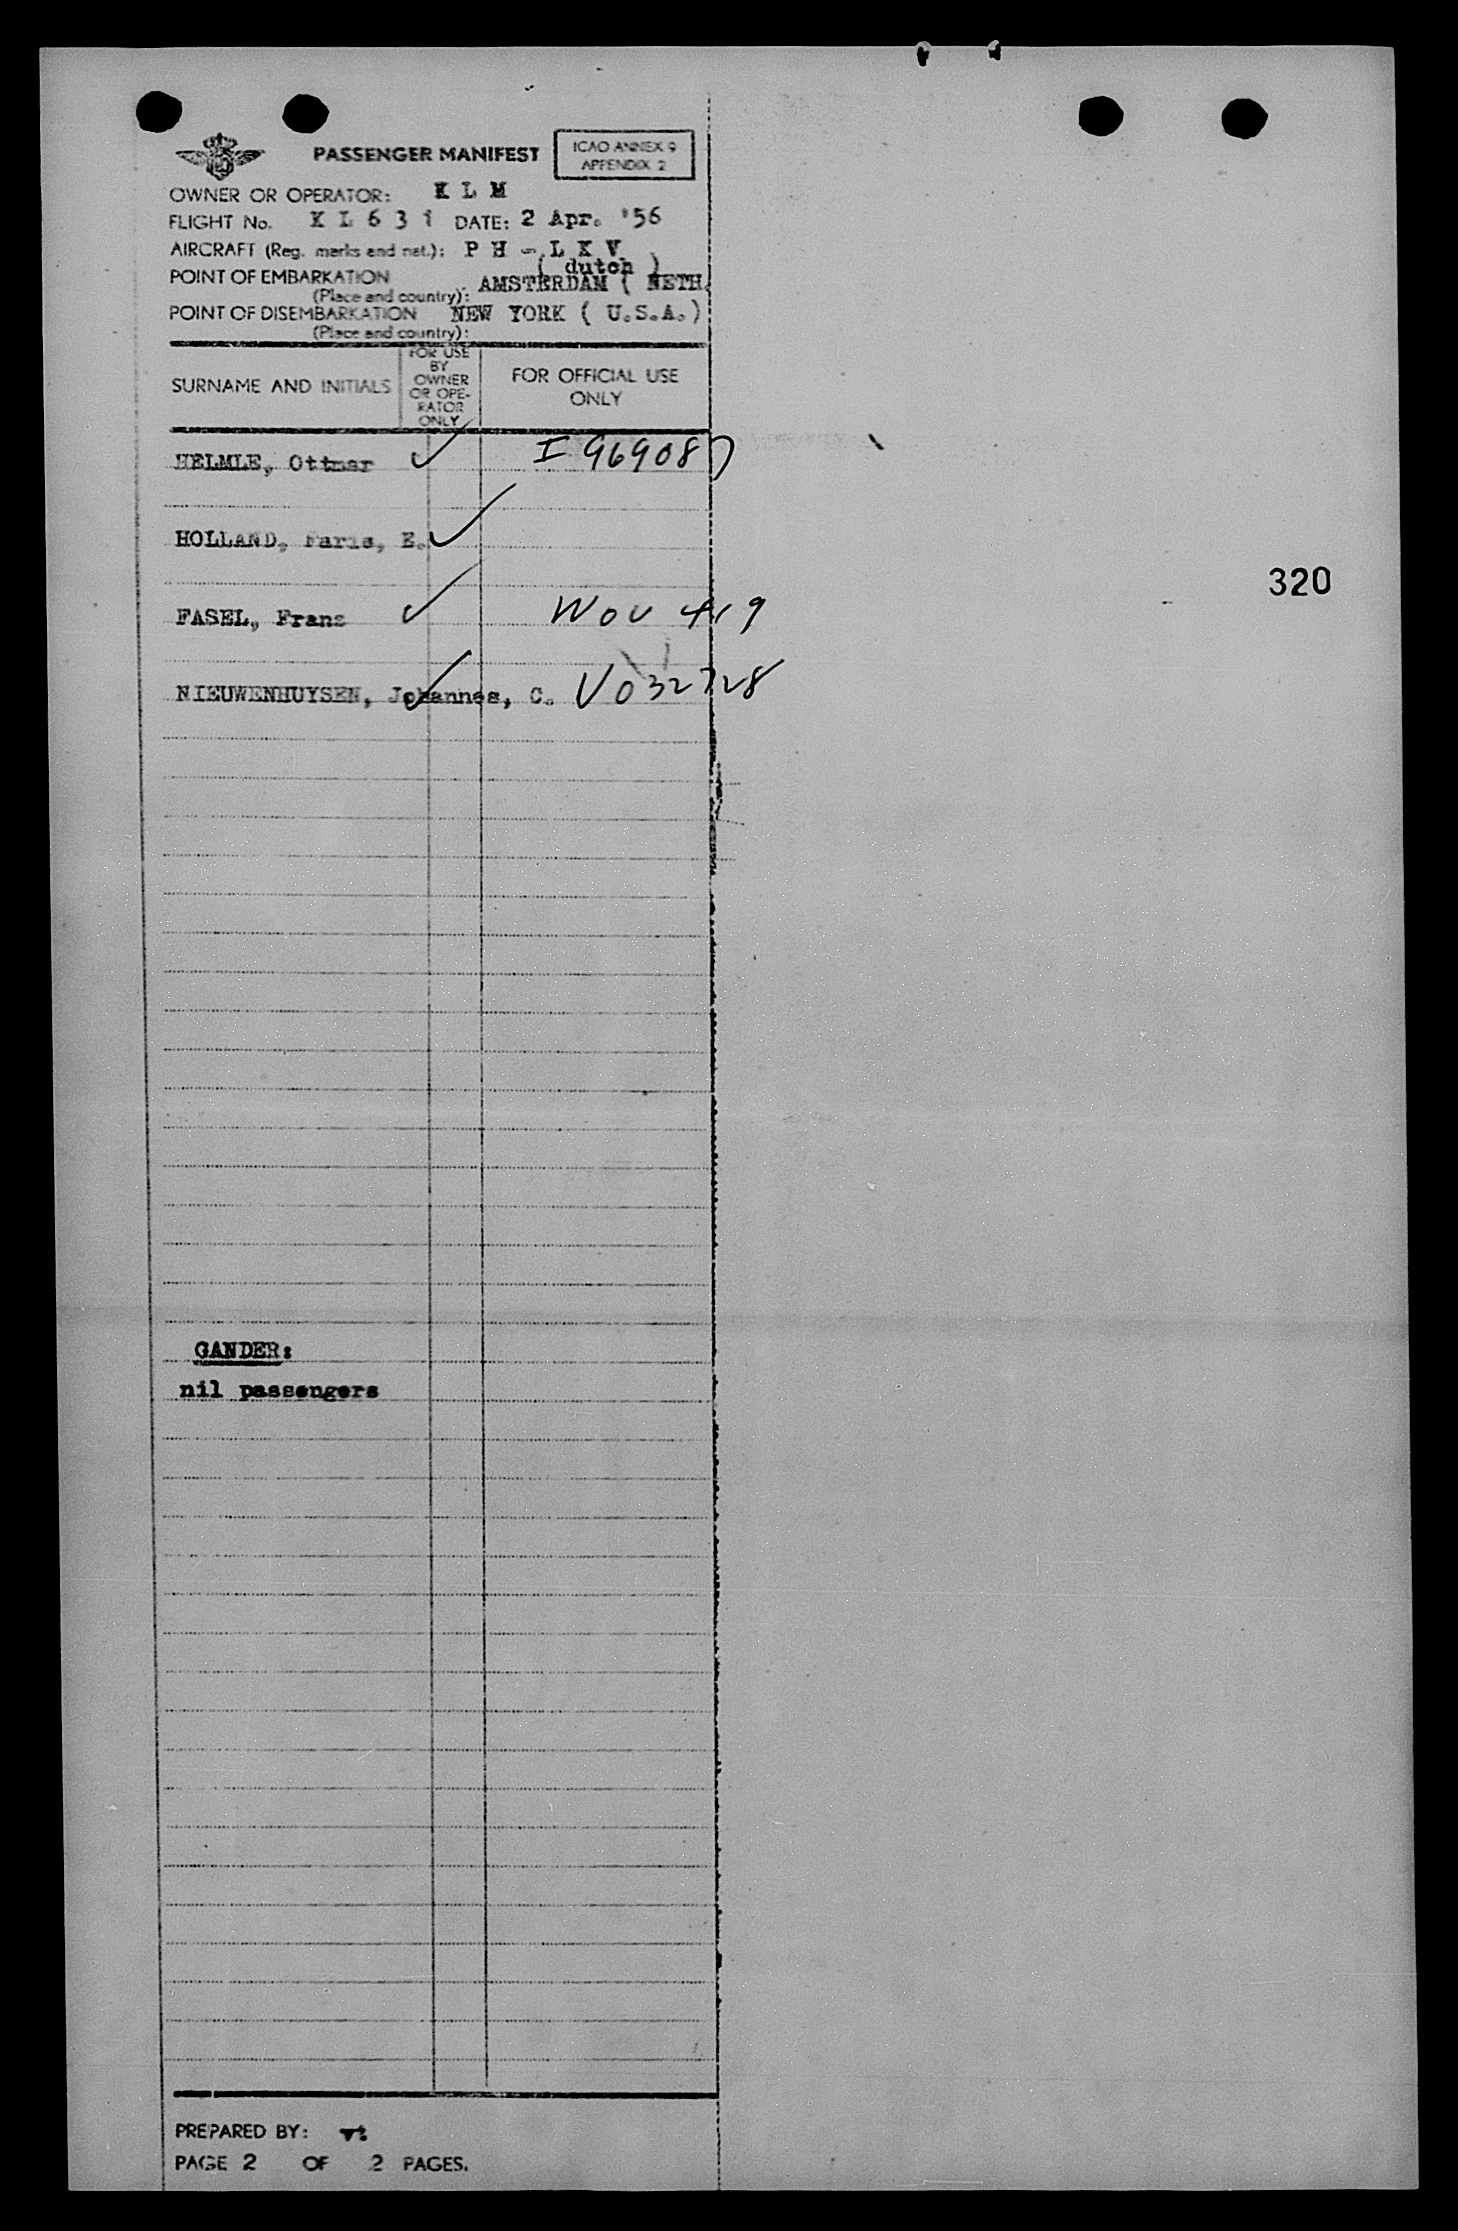 PASSENGER MANIFEST
ICAO ANNEX 9
APPENDIX 2
OWNER OR OPERATOR: K L M
FLIGHT No. K L 6 3 1 DATE: 2 Apr. '56
AIRCRAFT (Reg. marks and nat.): P H - L K V
( dutch )
POINT OF EMBARKATION AMSTERDAM ( NETH.
(Place and country):
POINT OF DISEMBARKATION NEW YORK ( U.S.A.)
(Place and country):
SURNAME AND INITIALS
FOR USE
BY
OWNER
OR OPE-
RATOR
ONLY
FOR OFFICIAL USE
ONLY
HELMLE, Ottmar ✓ I 969087
HOLLAND, Faris, E. ✓
FASEL, Frans ✓ WOV 419
NIEUWENHUYSEN, Johannes, C. ✓ V032728
320
GANDER:
nil passengers
PREPARED BY: vt
PAGE 2 OF 2 PAGES.